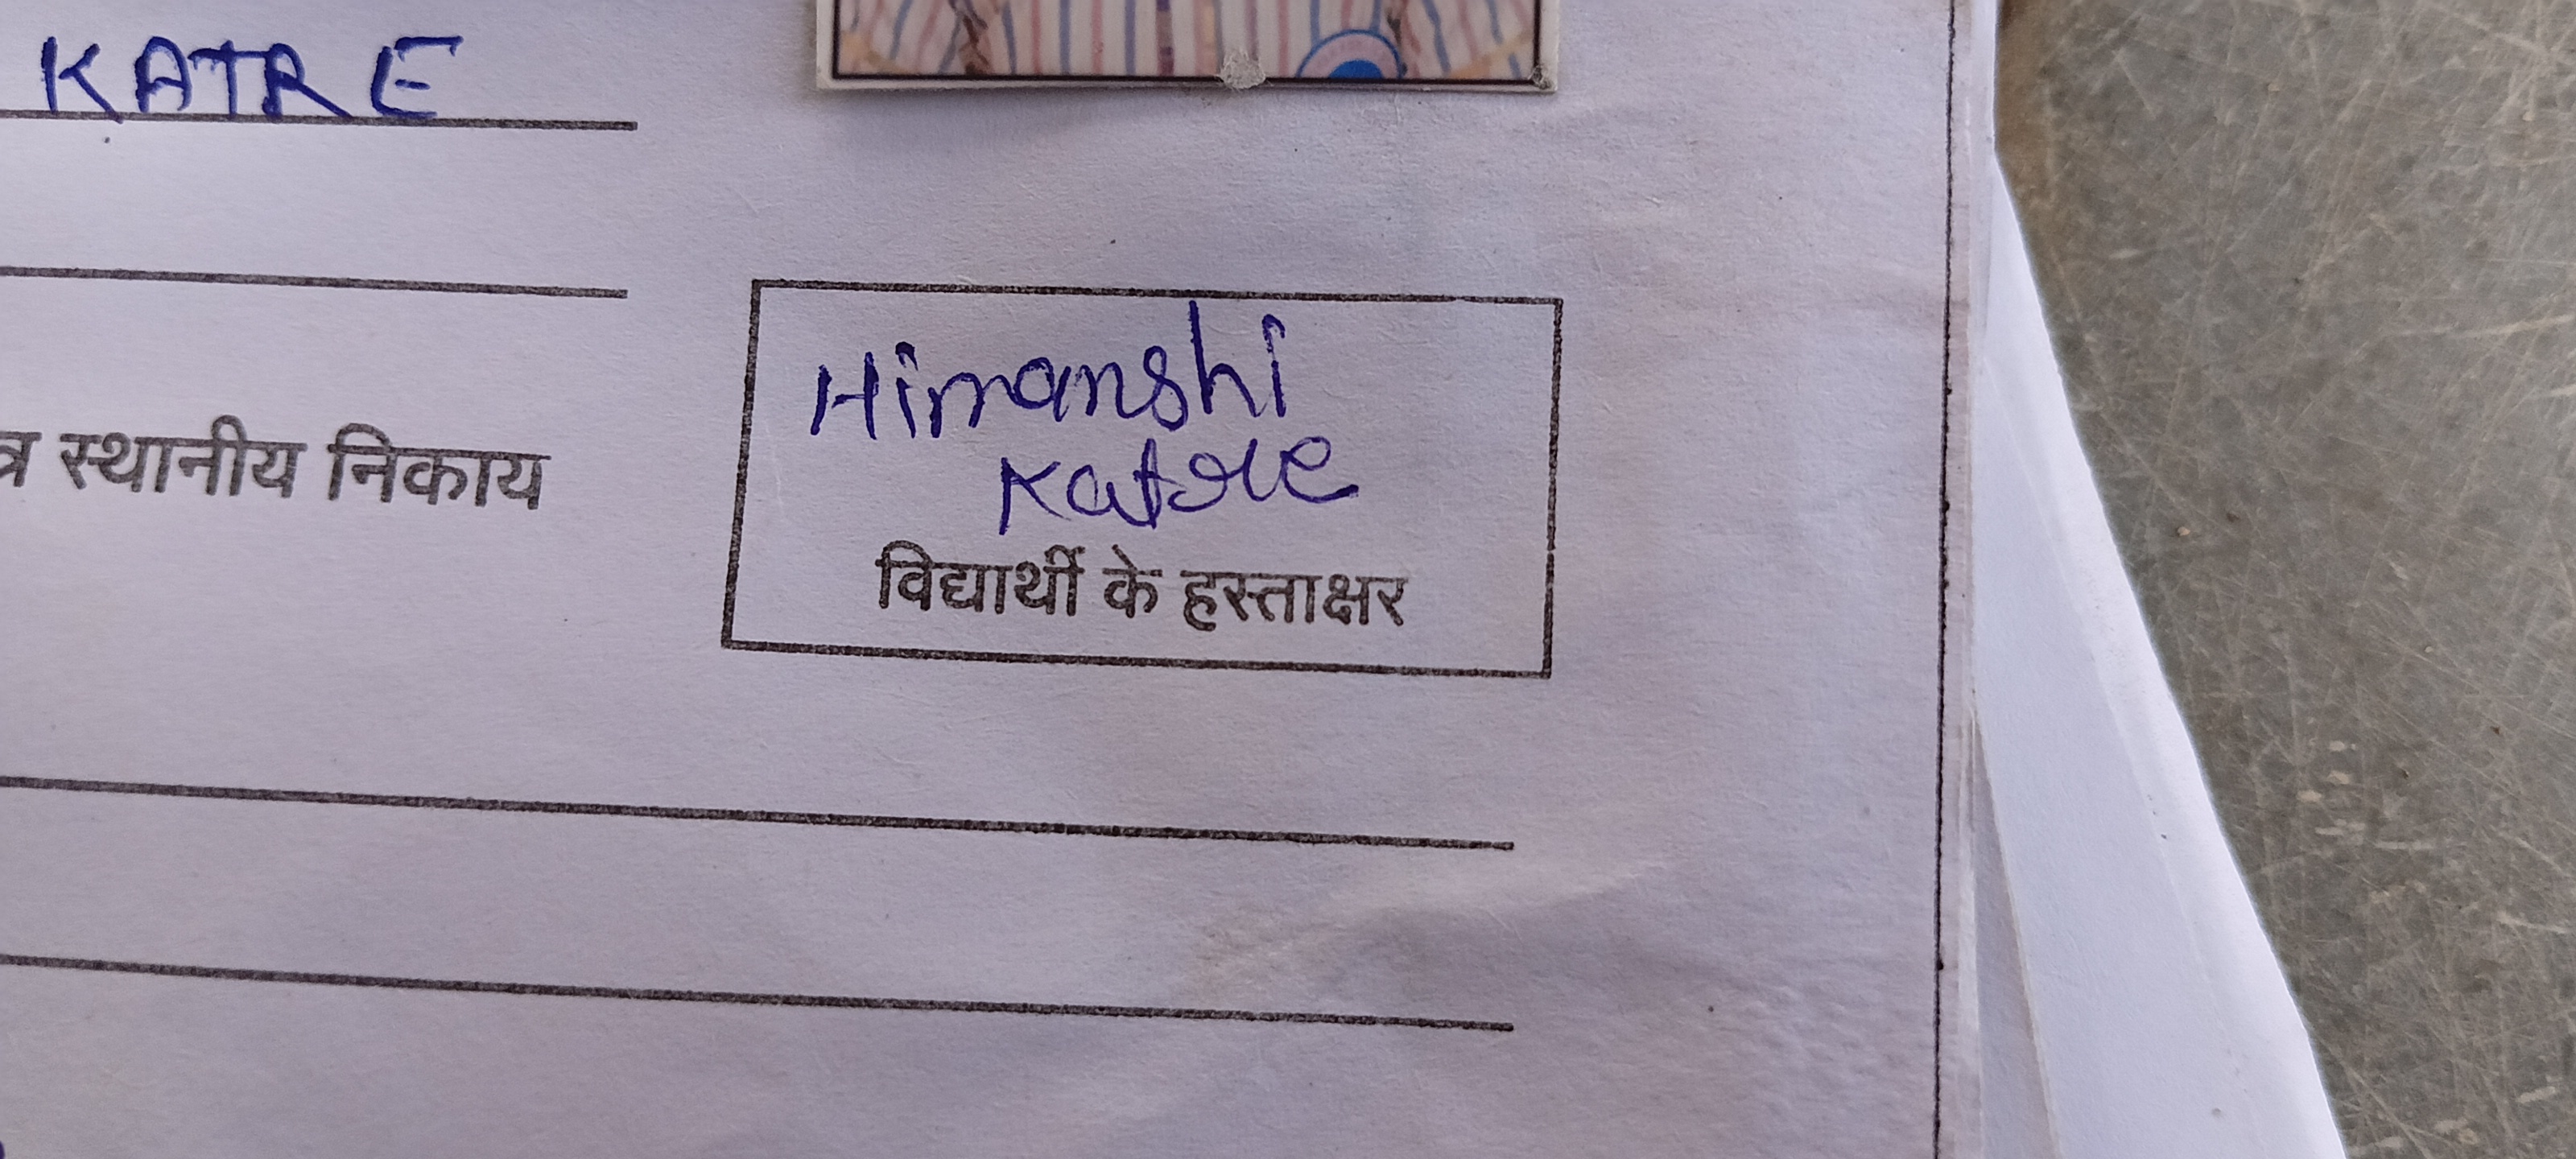 KATRE
Himanshi
Katre
स्थानीय निकाय
विद्यार्थी के हस्ताक्षर